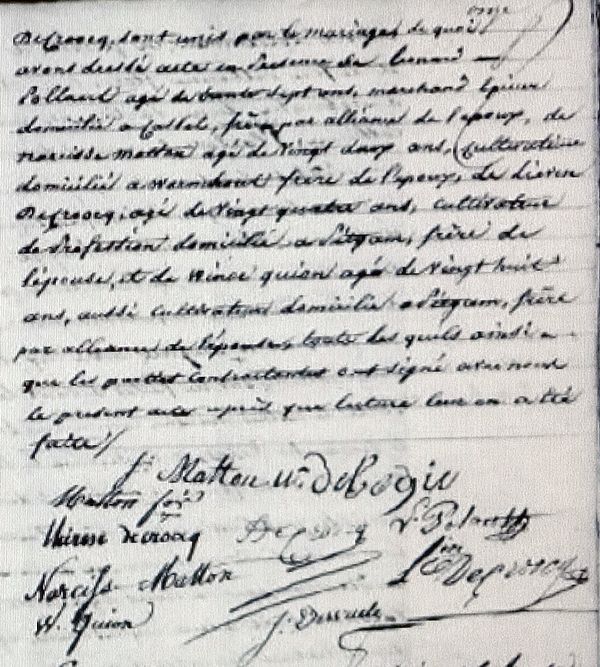 Decroocq, sont unis par le mariage, de quoi
avons dressé acte en présence de Leonard
Pollaert agé de trente sept ans, marchand épicier
domicilié a Cassel, frère par alliance de l'epoux, de
narcisse Matton agé de vingt deux ans, cultivateur
domicilié a wormhout frère de l'epoux, de Lievin
Decroocq agé de vingt quatre ans, cultivateur
de profession domicilié a Pitgam, frère de
l'épouse, et de Wince quion agé de vingt huit
ans, aussi cultivateur domicilié a Pitgam, frère
par alliance de l'épouse, touts les quels ainsi
que les parties contractantes ont signé avec nous
le present acte après que lecture leur en a été
faite /
Matton
Matton
thérèse decroocq
Narcisse Matton
W. Quion